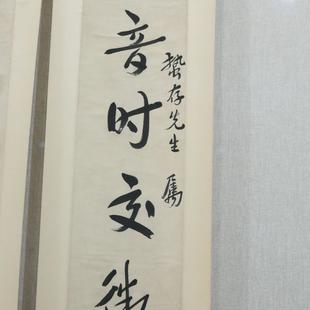 蛰存先生属
音时交